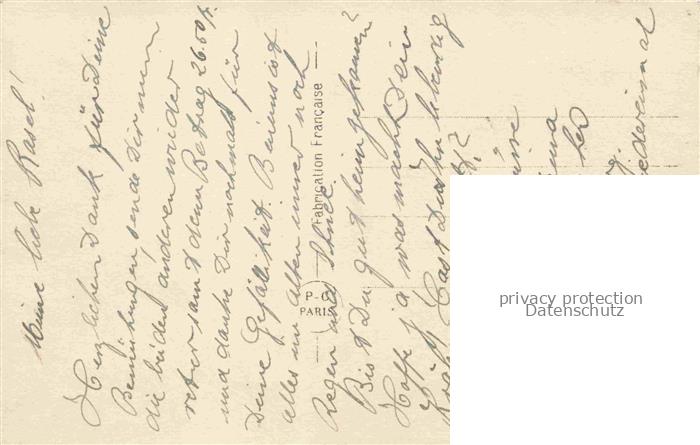 Meine liebe Rasel!
Herzlichen Dank für Deine
Bemühungen sende Dir nun
die beiden anderen wieder
retour samt dem Betrag 26.50 fr.
und danke Dir nochmals für
Deine Gefälligkeit. Bei uns ist
alles im Alten immer noch
Regen und
Bist Du gut heim gekommen?
Hoffe ja was macht Dein
Hast Du ihn lebendig
wiedereinmal
Fabrication Française
P-C
PARIS
privacy protection
Datenschutz